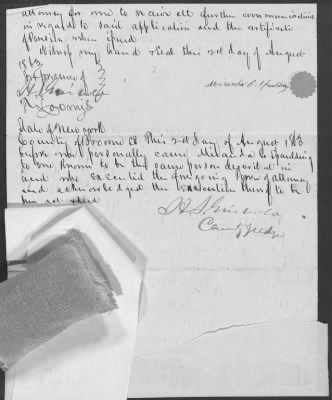 attorney for me to receive all further communications
in regards to said application and the certificate
of Pension when issued
Witness my hand & seal this 2d day of August
1863
In presence of
H S Griswold
Loomis
Miranda C Spaulding
State of New York
County of Broome SS This 2d day of August 1863
before me personally came Miranda C Spaulding
to me known to be the same person described in
and who executed the foregoing Power of attorney
and acknowledged the execution thereof to be
her act & deed
H S Griswold
County Judge